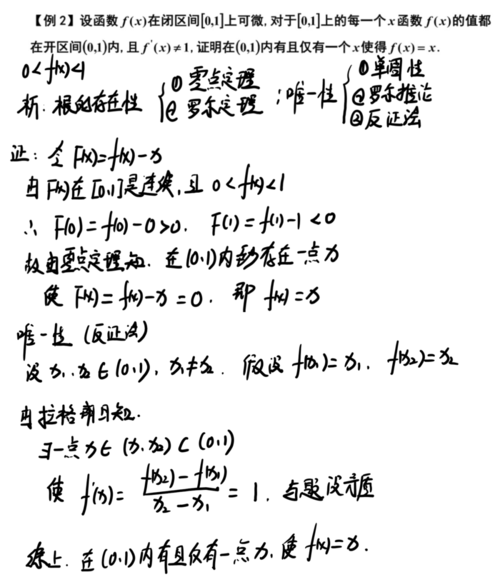 【例 2】设函数 f(x) 在闭区间[0,1]上可微, 对于[0,1]上的每一个 x 函数 f(x) 的值都
在开区间(0,1)内, 且 f'(x)≠1, 证明在(0,1)内有且仅有一个 x 使得 f(x)=x.
0<f(x)<1
析: 根的存在性 { ① 零点定理 ② 罗尔定理 ; 唯一性 { ① 单调性 ② 罗尔推论 ③ 反证法
证: 令 F(x)=f(x)-x
由F(x)在[0,1]是连续, 且 0<f(x)<1
∴ F(0)=f(0)-0>0, F(1)=f(1)-1<0
故由零点定理知. 在(0,1)内至少存在一点x
使 F(x)=f(x)-x=0. 即 f(x)=x
唯一性 (反证法)
设 x₁,x₂∈(0,1), x₁≠x₂. 假设 f(x₁)=x₁, f(x₂)=x₂
由拉格朗日知.
∃一点x∈(x₁,x₂)⊂(0,1)
使 f'(x)= (f(x₂)-f(x₁))/(x₂-x₁) = 1. 与题设矛盾
综上. 在(0,1)内有且仅有一点x, 使 f(x)=x.